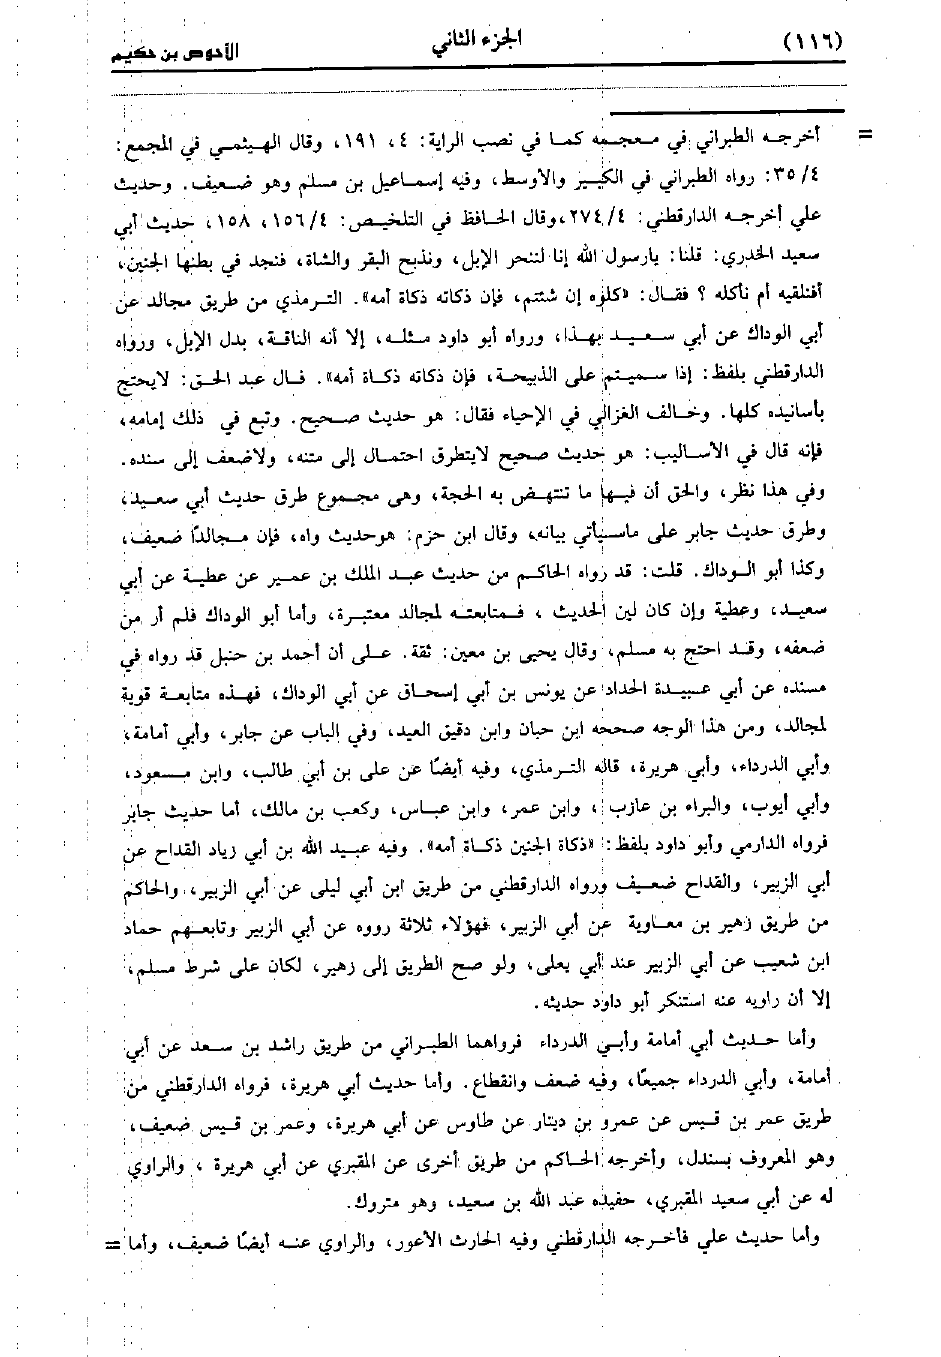 (١١٦) الجزء الثاني الأحوص بن حكيم
= أخرجه الطبراني في معجمه كما في نصب الراية: ٤، ١٩١، وقال الهيثمي في المجمع:
٣٥/٤: رواه الطبراني في الكبير والأوسط، وفيه إسماعيل بن مسلم وهو ضعيف. وحديث
علي أخرجه الدارقطني: ٢٧٤/٤، وقال الحافظ في التلخيص: ١٥٦/٤، ١٥٨، حديث أبي
سعيد الخدري: قلنا: يارسول الله إنا لننحر الإبل، ونذبح البقر والشاة، فنجد في بطنها الجنين،
أفنلقيه أم نأكله ؟ فقال: «كلوه إن شئتم، فإن ذكاته ذكاة أمه». الترمذي من طريق مجالد عن
أبي الوداك عن أبي سعيد بهذا، ورواه أبو داود مثله، إلا أنه الناقة، بدل الإبل، ورواه
الدارقطني بلفظ: إذا سميتم على الذبيحة، فإن ذكاته ذكاة أمه». قال عبد الحق: لايحتج
بأسانيده كلها. وخالف الغزالي في الإحياء فقال: هو حديث صحيح. وتبع في ذلك إمامه،
فإنه قال في الأساليب: هو حديث صحيح لايتطرق احتمال إلى متنه، ولاضعف إلى سنده.
وفي هذا نظر، والحق أن فيها ما تنتهض به الحجة، وهي مجموع طرق حديث أبي سعيد،
وطرق حديث جابر على ماسيأتي بيانه، وقال ابن حزم: هوحديث واه، فإن مجالدًا ضعيف،
وكذا أبو الوداك. قلت: قد رواه الحاكم من حديث عبد الملك بن عمير عن عطية عن أبي
سعيد، وعطية وإن كان لين الحديث ، فمتابعته لمجالد معتبرة، وأما أبو الوداك فلم أر من
ضعفه، وقد احتج به مسلم، وقال يحيى بن معين: ثقة. على أن أحمد بن حنبل قد رواه في
مسنده عن أبي عبيدة الحداد عن يونس بن أبي إسحاق عن أبي الوداك، فهذه متابعة قوية
لمجالد، ومن هذا الوجه صححه ابن حبان وابن دقيق العيد، وفي الباب عن جابر، وأبي أمامة،
وأبي الدرداء، وأبي هريرة، قاله الترمذي، وفيه أيضًا عن علي بن أبي طالب، وابن مسعود،
وأبي أيوب، والبراء بن عازب ، وابن عمر، وابن عباس، وكعب بن مالك، أما حديث جابر
فرواه الدارمي وأبو داود بلفظ: «ذكاة الجنين ذكاة أمه». وفيه عبيد الله بن أبي زياد القداح عن
أبي الزبير، والقداح ضعيف ورواه الدارقطني من طريق ابن أبي ليلى عن أبي الزبير، والحاكم
من طريق زهير بن معاوية عن أبي الزبير، فهؤلاء ثلاثة رووه عن أبي الزبير وتابعهم حماد
ابن شعيب عن أبي الزبير عند أبي يعلى، ولو صح الطريق إلى زهير، لكان على شرط مسلم،
إلا أن راويه عنه استنكر أبو داود حديثه.
وأما حديث أبي أمامة وأبي الدرداء فرواهما الطبراني من طريق راشد بن سعد عن أبي
أمامة، وأبي الدرداء جميعًا، وفيه ضعف وانقطاع. وأما حديث أبي هريرة، فرواه الدارقطني من
طريق عمر بن قيس عن عمرو بن دينار عن طاوس عن أبي هريرة، وعمر بن قيس ضعيف،
وهو المعروف بسندل، وأخرجه الحاكم من طريق أخرى عن المقبري عن أبي هريرة ، والراوي
له عن أبي سعيد المقبري، حفيده عبد الله بن سعيد، وهو متروك.
وأما حديث علي فأخرجه الدارقطني وفيه الحارث الأعور، والراوي عنه أيضًا ضعيف، وأما =